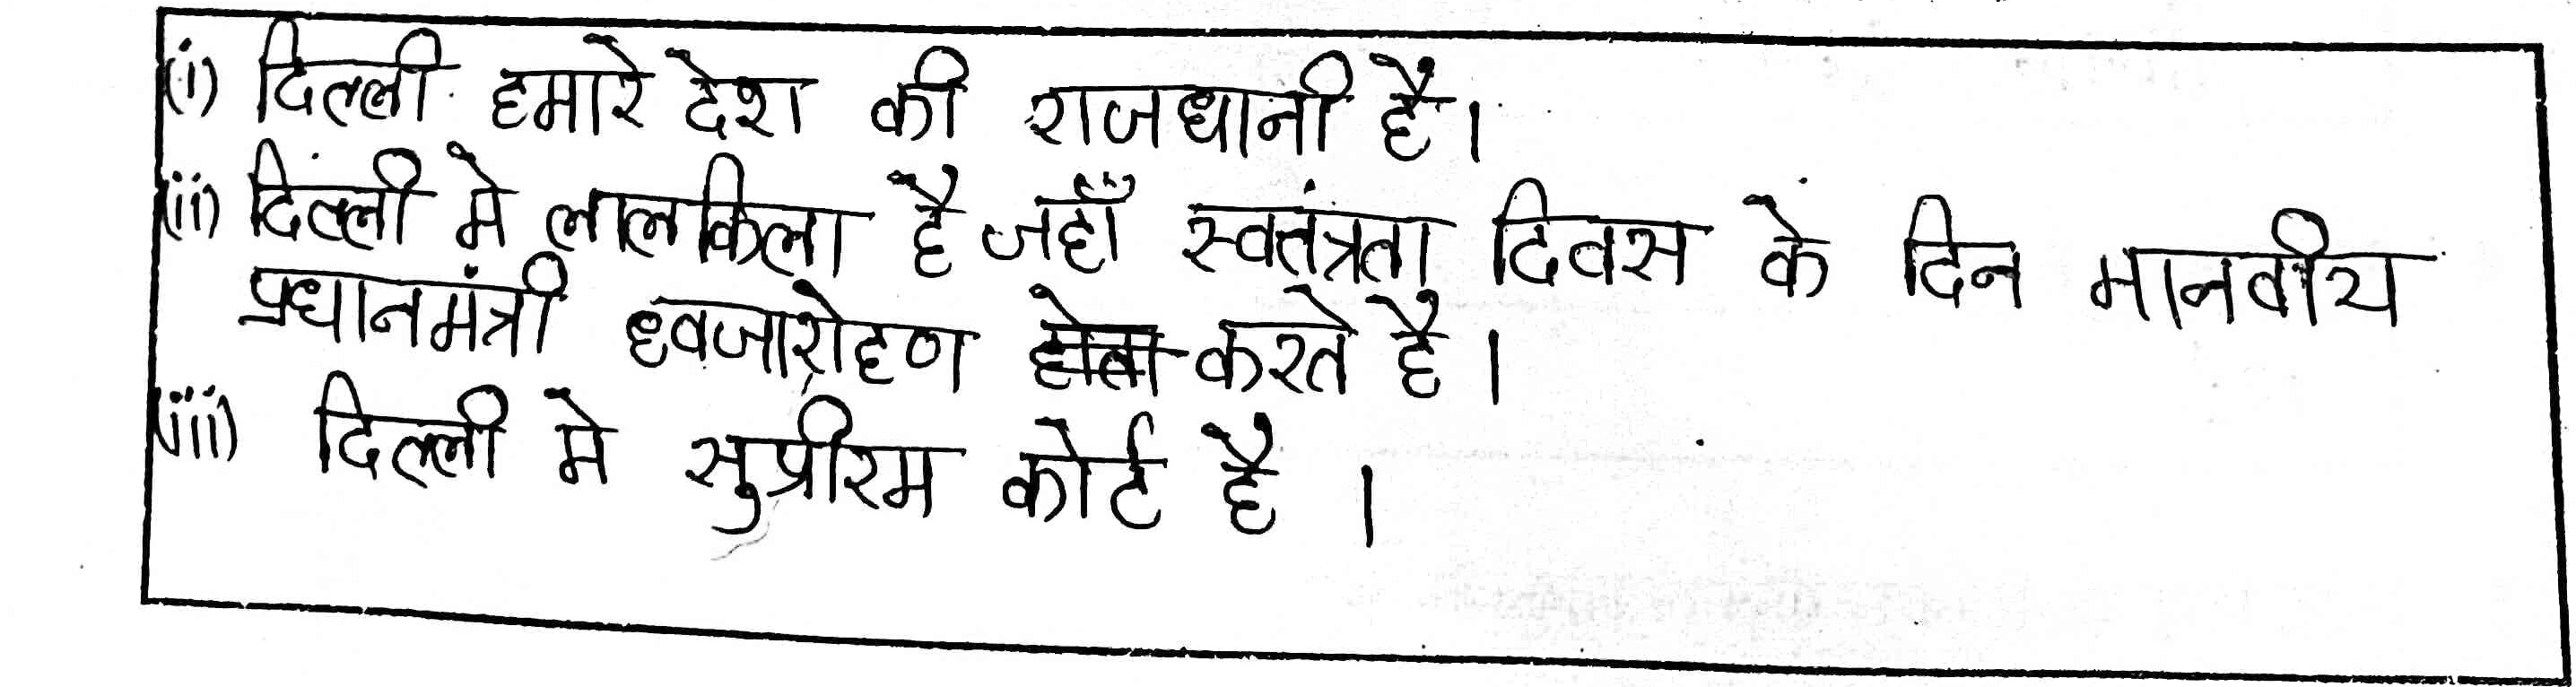 (i) दिल्ली हमारे देश की राजधानी है।
(ii) दिल्ली मे लालकिला है जहाँ स्वतंत्रता दिवस के दिन मानवीय
प्रधानमंत्री ध्वजारोहण होता करते है।
(iii) दिल्ली मे सुप्रीरम कोर्ट है ।